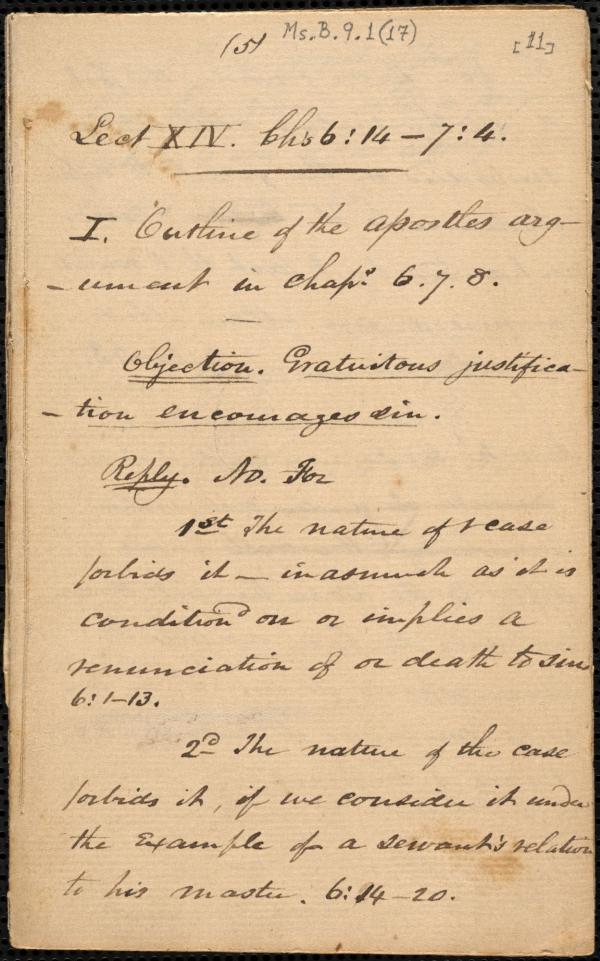 (5) Ms. B. 9. 1 (17) [11]
Lect XIV. Chs 6:14 – 7:4.
I. Outline of the apostles arg-
- ument in chaps. 6. 7. 8.
Objection. Gratuitous justifica-
- tion encourages sin.
Reply. No. For
1st The nature of t case
forbids it – inasmuch as it is
conditiond on or implies a
renunciation of or death to sin
6:1–13.
2d The nature of the case
forbids it, if we consider it under
the Example of a servant's relation
to his master. 6:14–20.